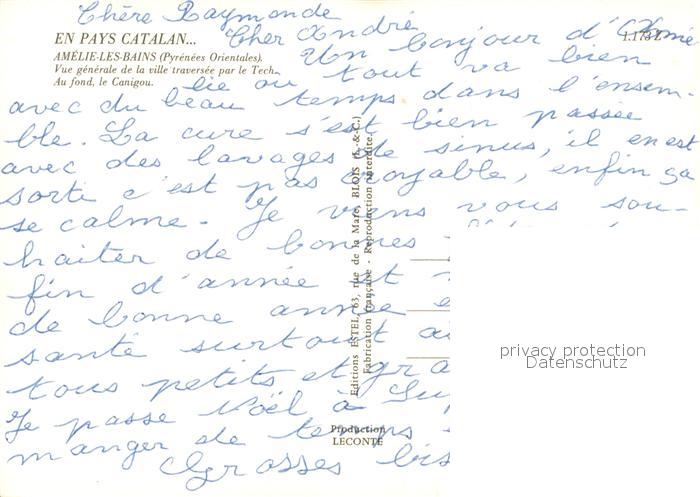 Chère Raymonde
Cher André
EN PAYS CATALAN...
Un bonjour d'Amé-
1.173 Z
AMÉLIE-LES-BAINS (Pyrénées Orientales).
Vue générale de la ville traversée par le Tech.
Au fond, le Canigou.
lie où tout va bien
avec du beau temps dans l'ensem-
ble. La cure s'est bien passée
avec des lavages de sinus, il en est
sorte c'est pas croyable, enfin ça
se calme. Je viens vous sou-
haiter de bonnes
fin d'année et
de bonne année
santé surtout au
tous petits et gra
Je passe Noël à
manger de temps
Grosses bis
Editions ESTEL, 63, rue de la Mare, BLOIS (L.-&-C.)
Fabrication française - Reproduction interdite.
Production
LECONTE
privacy protection
Datenschutz